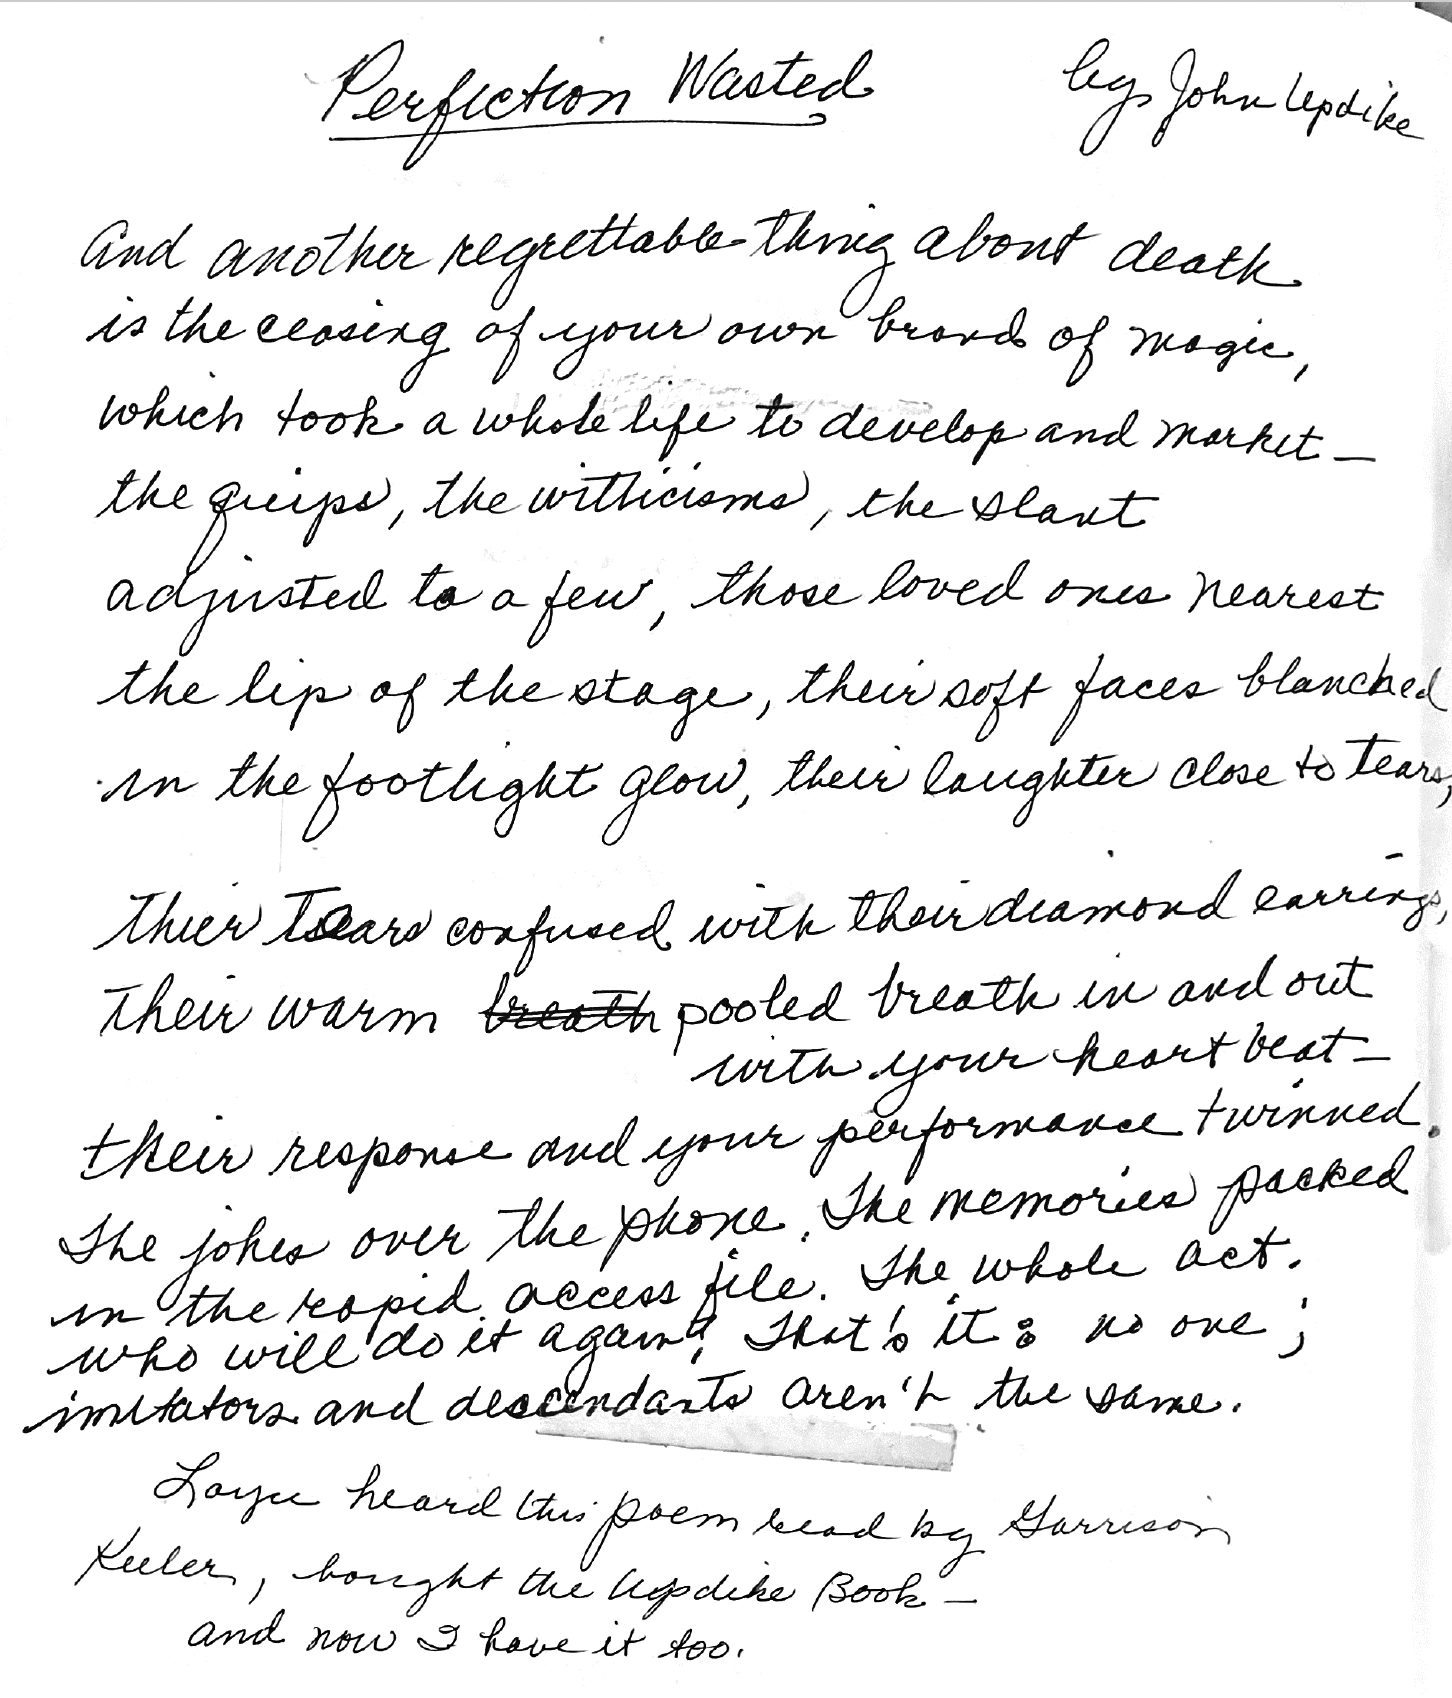 Perfection Wasted by John Updike
And another regrettable thing about death
is the ceasing of your own brand of magic,
which took a whole life to develop and market—
the quips, the witticisms, the slant
adjusted to a few, those loved ones nearest
the lip of the stage, their soft faces blanched
in the footlight glow, their laughter close to tears,
Thier tears confused with their diamond earrings,
Their warm breath pooled breath in and out
with your heart beat—
their response and your performance twinned.
The jokes over the phone. The memories packed
in the rapid access file. The whole act.
who will do it again? That's it: no one;
imitators and descendants aren't the same.
heard this poem read by Garrison
Keeler, bought the Updike Book—
and now I have it too.